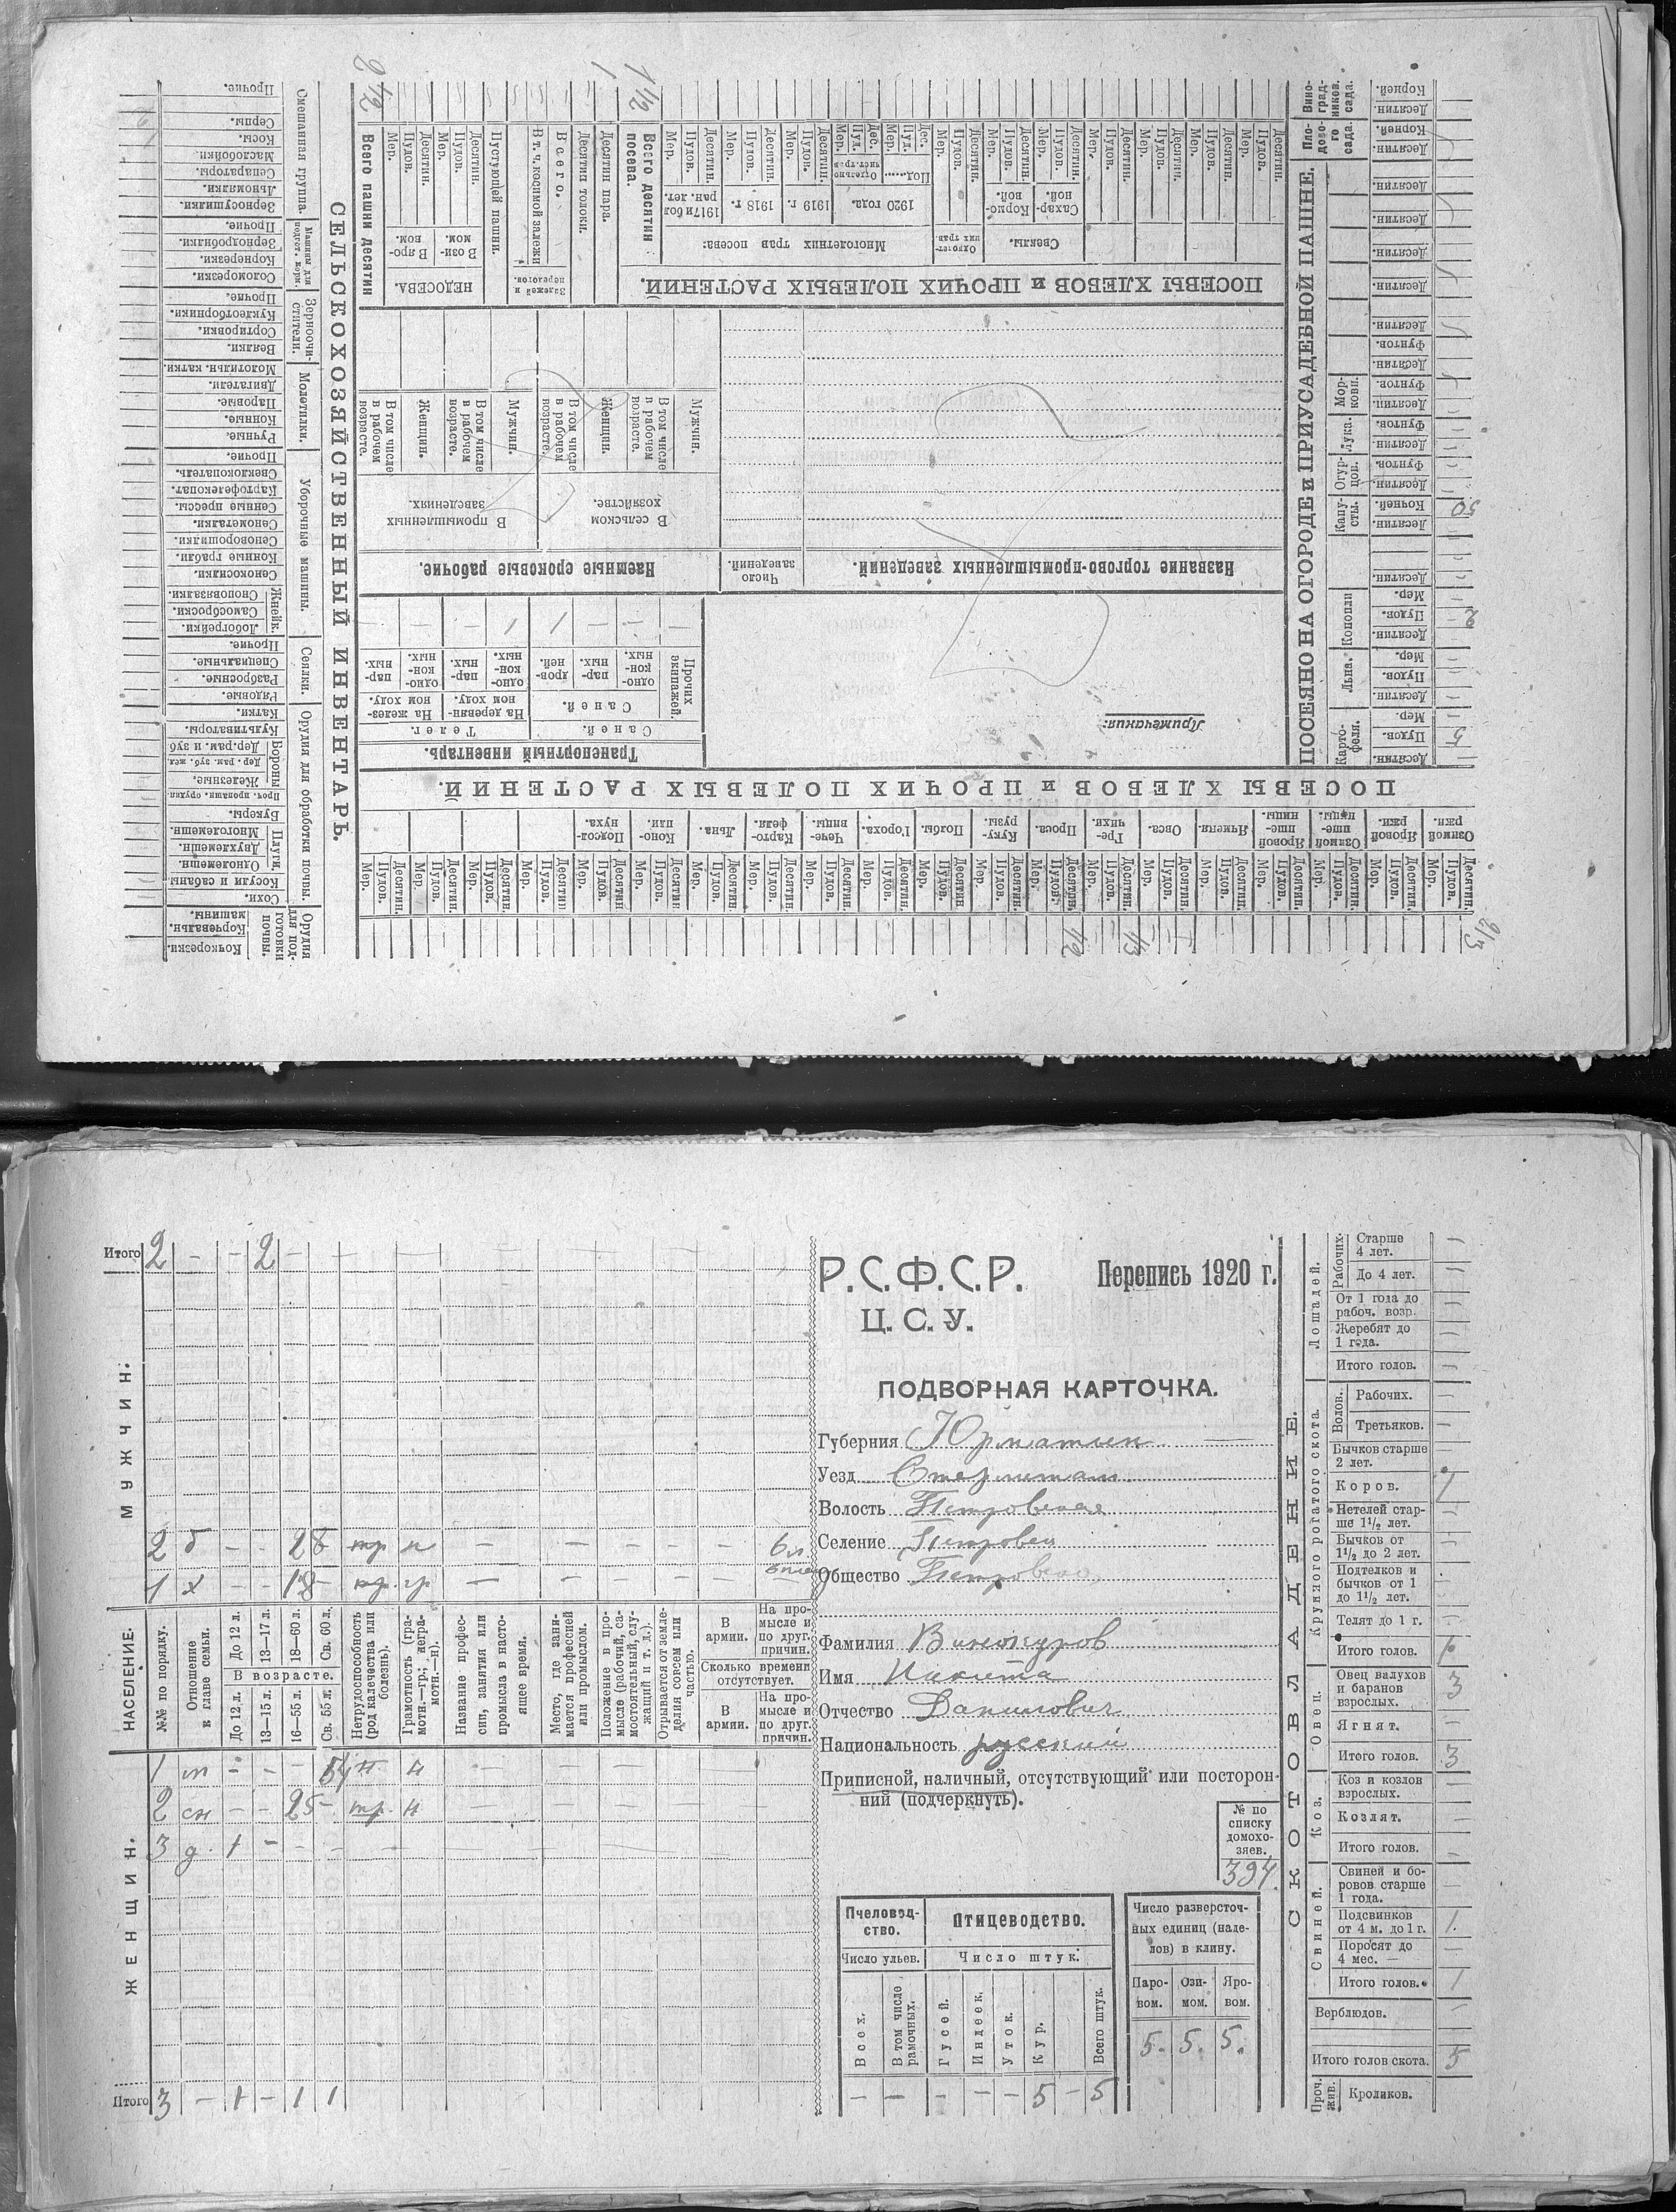 СЕЛЬСКОХОЗЯЙСТВЕННЫЙ ИНВЕНТАРЬ.
Орудия для подготовки почвы.
Кочкорезки.
Корчевальн. машины.
Орудия для обработки почвы.
Сохи.
Косули и сабаны
Плуги
Одполемешн.
Двухлемешн.
Многолемешн.
Букеры.
Проч. пропашн. орудия
Бороны
Железные.
Дер. рам. зуб. жел.
Дер. рам. и зуб
Культиваторы.
Катки.
Сеялки.
Рядовые.
Разбросные.
Специальные.
Прочие.
Уборочные машины.
Жнейк.
Лобогрейки.
Самоброски.
Сноповязалки.
Сенокосилки.
Конные грабли.
Сеноворошилки.
Сенометалки.
Сенные прессы.
Картофелекопат.
Свеклокопатель.
Прочие.
Молотилки.
Ручные.
Конные.
Паровые.
Двигатели.
Молотильн. катки.
Зерноочистители.
Веялки.
Сортировки.
Куклеотборники.
Прочие.
Машины для подгот. корм.
Соломорезки.
Корнерезки.
Зернодробилки.
Прочие.
Смешанная группа.
Зерносушилки.
Льномялки.
Сепараторы.
Маслобойки.
Косы.
Серпы.
Прочие.
ПОСЕВЫ ХЛЕБОВ и ПРОЧИХ ПОЛЕВЫХ РАСТЕНИЙ.
Озимой ржи.
Яровой ржи.
Озимой пшеницы.
Яровой пшеницы.
Ячменя.
Овса.
Гречихи.
Проса.
Кукурузы.
Полбы.
Гороха.
Чечевицы.
Картофеля.
Льна.
Конопли.
Подсолнуха.
Десятин. Пудов. Мер.
2/3
1/3
1/2
Транспортный инвентарь.
Телег.
На железном ходу.
На деревянном ходу.
Саней.
Саней.
Прочих экипажей.
одноконных.
парных.
дровней.
Примечания:
Название торгово-промышленных заведений.
Число заведений.
Наемные сроковые рабочие.
В сельском хозяйстве.
В промышленных заведениях.
Мужчин.
В том числе в рабочем возрасте.
Женщин.
В том числе в рабочем возрасте.
ПОСЕВЫ ХЛЕБОВ и ПРОЧИХ ПОЛЕВЫХ РАСТЕНИЙ.
Свеклы.
Сахарной.
Кормовой.
Однолетних трав.
Многолетних трав посева:
1920 года.
1919 г.
1918 г.
1917 и бол ран. лет.
Всего десятин посева.
1 1/2
Десятин пара.
1
Десятин толоки.
Залежей и перелогов.
Всего.
В т. ч. косимой залежи
Пустующей пашни.
НЕДОСЕВА.
В озимом.
В яровом.
Всего пашни десятин
2 1/2
ПОСЕЯНО НА ОГОРОДЕ и ПРИУСАДЕБНОЙ ПАШНЕ.
Картофеля.
Льна.
Конопли
Капусты.
Огурцов.
Лука.
Моркови.
Плодового сада.
Виноградников. сада.
Десятин. Пудов. Мер.
Кочней.
Фунтов.
Корней.
5
2
50
Р.С.Ф.С.Р.
Перепись 1920 г.
Ц.С.У.
ПОДВОРНАЯ КАРТОЧКА.
Губерния Юрматын
Уезд Стерлитам
Волость Петровская
Селение Петровск
Общество Петровско
Фамилия Винокуров
Имя Никита
Отчество Данилович
Национальность русский
Приписной, наличный, отсутствующий или посторонний (подчеркнуть).
№ по списку домохозяев.
394.
Пчеловодство.
Птицеводство.
Число ульев.
Число штук.
Всех.
В том числе рамочных.
Гусей.
Индеек.
Уток.
Кур.
Всего штук.
— — — — — 5 — 5
Число разверсточных единиц (наделов) в клину.
Паровом. Озимом. Яровом.
5. 5. 5.
НАСЕЛЕНИЕ.
МУЖЧИН.
Итого 2 — — 2 —
2 б — — 28 — тр н — — — — — 6 л.
1 х — — 18 — тр. гр — — — — —
№№ по порядку.
Отношение к главе семьи.
В возрасте.
До 12 л. 13—17 л. 18—60 л. Св. 60 л.
До 12 л. 13—15 л. 16—55 л. Св. 55 л.
Нетрудоспособность (род калечества или болезнь).
Грамотность (грамотн.—гр.; неграмотн.—н).
Название профессии, занятия или промысла в настоящее время.
Место, где занимается профессией или промыслом.
Положение в промысле (рабочий, самостоятельный, служащий и т. д.).
Отрывается от земледелия совсем или частью.
Сколько времени отсутствует.
В армии.
На промысле и по друг. причин.
ЖЕНЩИН.
1 м — — — н
2 сн — — 25 — тр. н
3 д. 1 —
Итого 3 — 1 — 1 1
СКОТОВЛАДЕНИЕ.
Лошадей.
Рабочих.
Старше 4 лет.
До 4 лет.
От 1 года до рабоч. возр.
Жеребят до 1 года.
Итого голов.
Крупного рогатого скота.
Волов.
Рабочих.
Третьяков.
Бычков старше 2 лет.
Коров. 1
Нетелей старше 1 1/2 лет.
Бычков от 1 1/2 до 2 лет.
Подтелков и бычков от 1 до 1 1/2 лет.
Телят до 1 г.
Итого голов. 1
Овец.
Овец валухов и баранов взрослых. 3
Ягнят.
Итого голов. 3
Коз.
Коз и козлов взрослых.
Козлят.
Итого голов.
Свиней.
Свиней и боровов старше 1 года.
Подсвинков от 4 м. до 1 г. 1.
Поросят до 4 мес.
Итого голов. 1
Верблюдов.
Итого голов скота. 5
Проч. жив.
Кроликов.